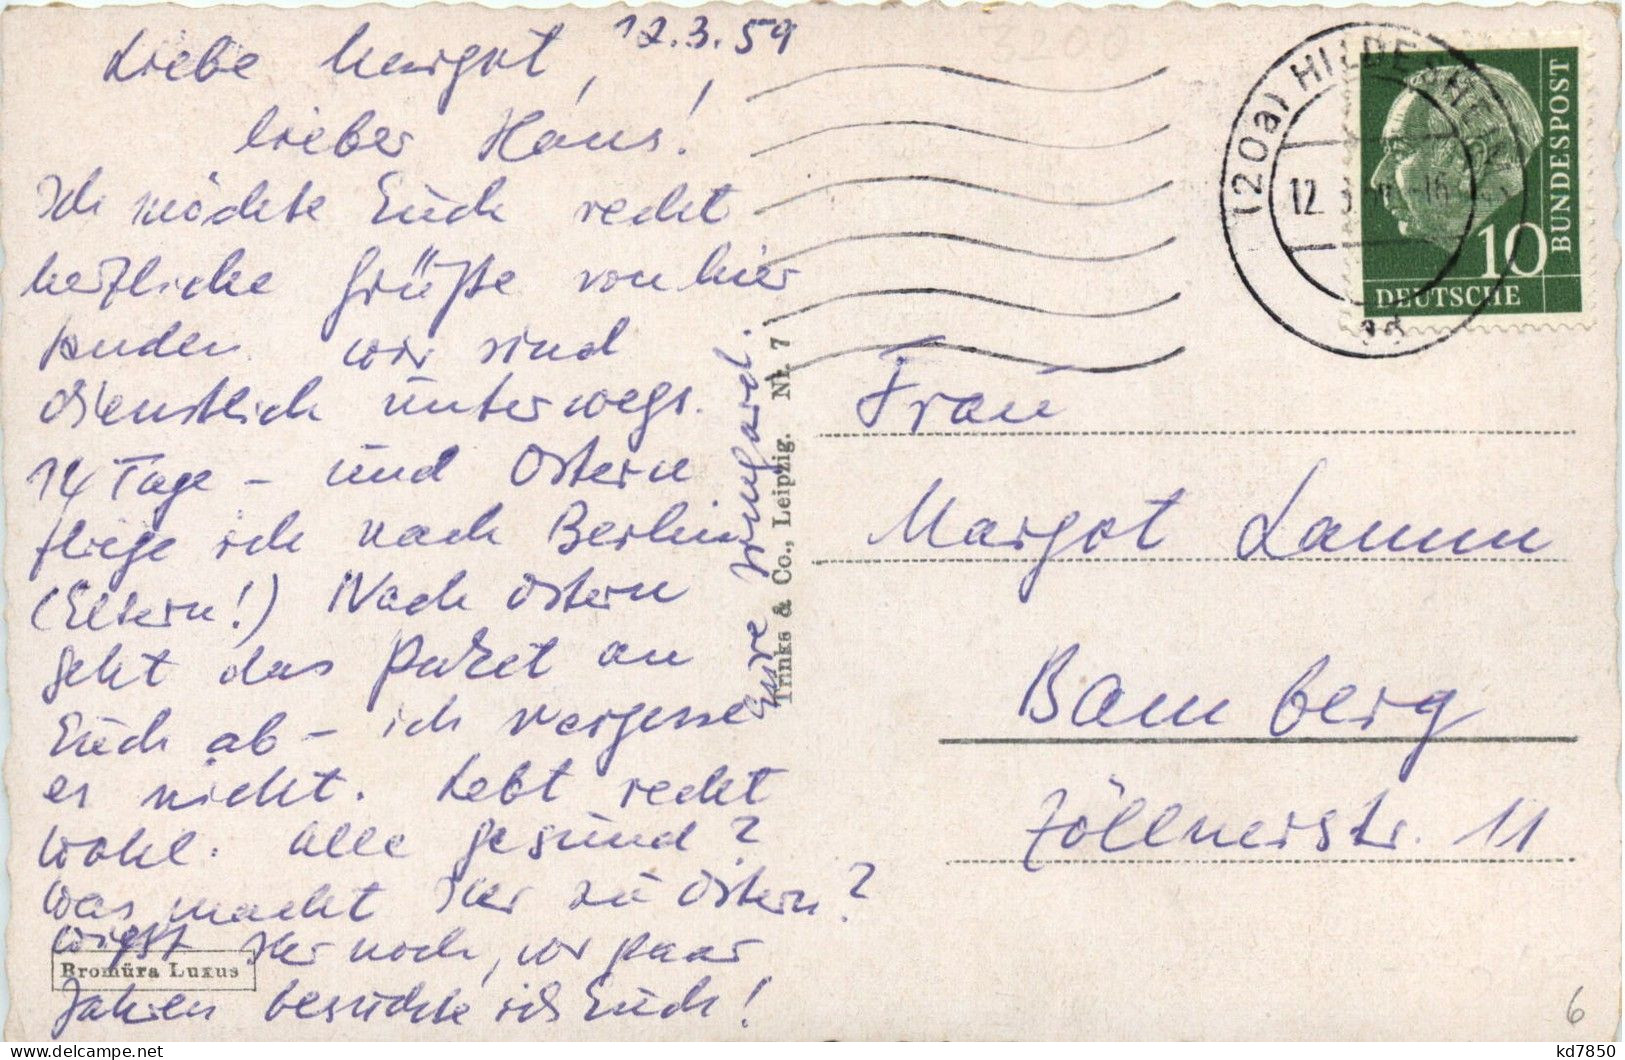 12.3.59
Liebe Margot,
lieber Hans!
Ich möchte Euch recht
herzliche Grüße von hier
senden. Wir sind
dienstlich unterwegs.
14 Tage – und Ostern
fliege ich nach Berlin
(Eltern!) Nach Ostern
geht das Paket an
Euch ab – ich vergesse
es nicht. Lebt recht
wohl. Alle gesund?
Was macht Ihr zu Ostern?
Wißt Ihr noch, vor paar
Jahren besuchte ich Euch!
Eure Irmgard.
Bromüra Luxus
Trinks & Co., Leipzig. Nr. 7
(20a) HILDESHEIM
12. 3. -16
DEUTSCHE
BUNDESPOST
10
Frau
Margot Lamm
Bamberg
Zöllnerstr. 11
6
kd7850